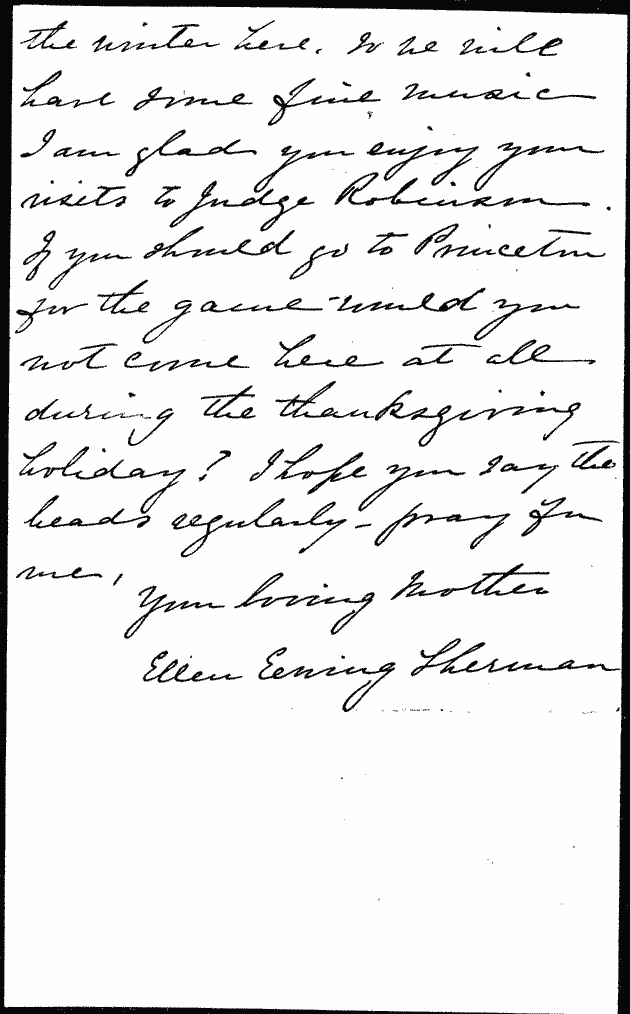 the winter here. So we will
have some fine music
I am glad you enjoy your
visits to Judge Robinson.
If you should go to Princeton
for the game would you
not come here at all
during the thanksgiving
holiday? I hope you say the
beads regularly - pray for
me,
Your loving Mother
Ellen Ewing Sherman